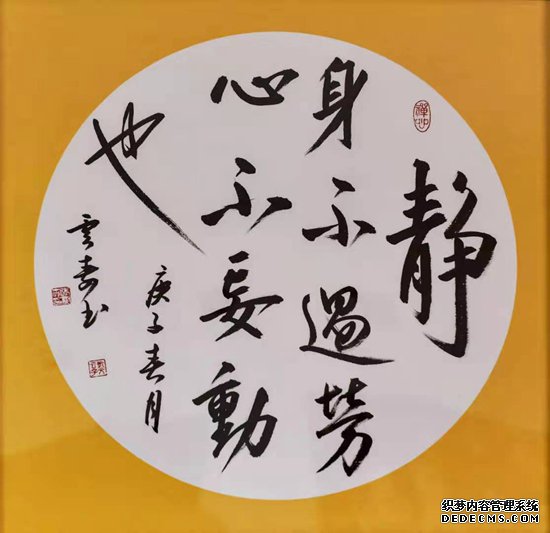 静
身不過劳
心不妄動
也
庚子春月
织梦内容管理系统
DEDECMS.COM